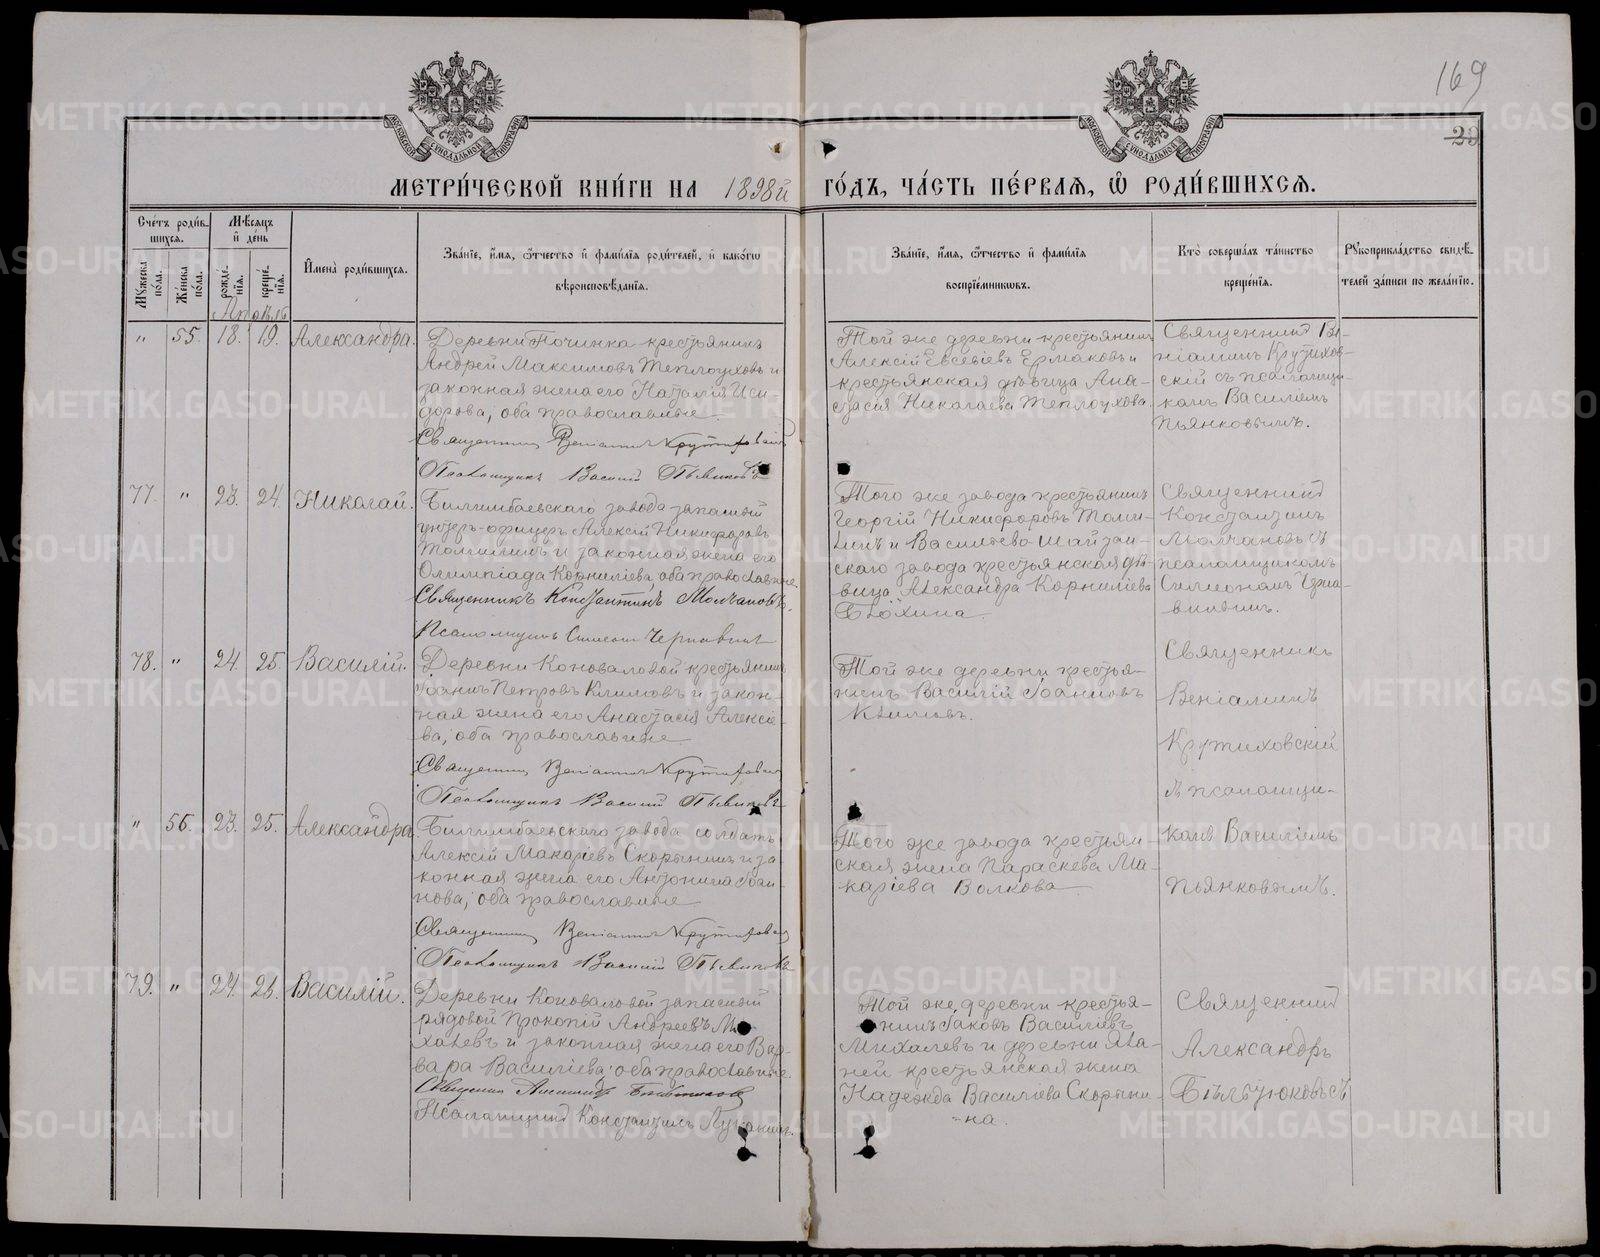 169
23
МОСКОВСКОЙ СѴНОДАЛЬНОЙ ТИПОГРАФІИ
МОСКОВСКОЙ СѴНОДАЛЬНОЙ ТИПОГРАФІИ
МЕТРИ́ЧЕСКОЙ КНИ́ГИ НА 1898й ГО́ДЪ, ЧА́СТЬ ПЕ́РВАѦ, Ѽ РОДИ́ВШИХСѦ.
Сче́тъ роди́в-
шихся.
Мꙋ́жеска по́ла.
Же́нска по́ла.
Мѣ́сяцъ
и҆ де́нь
рожде́нїя.
креще́нїя.
И҆мена̀ роди́вшихся.
Зва́нїе, и҆́мя, ѻ҆́тчество и҆ фами́лїя роди́телей, и҆ како́гѡ
вѣроисповѣ́данїя.
Зва́нїе, и҆́мя, ѻ҆́тчество и҆ фами́лїя
воспрїе́мниковъ.
Кто̀ соверша́лъ та́инство
креще́нїя.
Рꙋкоприкла́дство свидѣ́-
телей за́писи по жела́нїю.
Апрѣль
" 55. 18. 19. Александра.
Деревни Починка крестьянинъ
Андрей Максимовъ Теплоуховъ и
законная жена его Наталія Иси-
дорова, оба православные
Священникъ Веніаминъ Крутиховскій
Псаломщикъ Василій Пьянковъ
Той же деревни крестьянинъ
Алексій Евсевіевъ Ермаковъ и
крестьянская дѣвица Ана-
стасія Николаева Теплоухова.
Священникъ Ве-
ніаминъ Крутихов-
скій съ псаломщи-
комъ Василіемъ
Пьянковымъ.
77. " 23. 24. Николай.
Билимбаевскаго завода запасный
унтеръ-офицеръ Алексій Никифоровъ
Томилинъ и законная жена его
Олимпіада Корниліева, оба православные.
Священникъ Константинъ Молчановъ.
Псаломщикъ Симеонъ Чернавинъ
Того же завода крестьянинъ
Георгій Никифоровъ Томи-
линъ и Васильево-Шайтан-
скаго завода крестьянская дѣ-
вица Александра Корниліева
Священникъ
Константинъ
Молчановъ съ
псаломщикомъ
Симеономъ Черна-
винымъ.
78. " 24. 25. Василій.
Деревни Коноваловой крестьянинъ
Іоаннъ Петровъ Климовъ и закон-
ная жена его Анастасія Алексіе-
ва, оба православные
Священникъ Веніаминъ Крутиховскій
Псаломщикъ Василій Пьянковъ
Той же деревни крестья-
нинъ Василій Іоанновъ
Климовъ.
Священникъ
Веніаминъ
Крутиховскій
съ псаломщи-
комъ Василіемъ
Пьянковымъ.
" 56. 23. 25. Александра
Билимбаевскаго завода солдатъ
Алексій Макаріевъ Скорынинъ и за
конная жена его Антонина Іоан-
нова, оба православные
Священникъ Веніаминъ Крутиховскій
Псаломщикъ Василій Пьянковъ
Того же завода крестьян-
ская жена Параскева Ма-
каріева Волкова
79. " 24. 26. Василій.
Деревни Коноваловой запасный
рядовой Прокопій Андреевъ Ми-
халевъ и законная жена его Вар-
вара Василіева, оба православные.
Псаломщикъ Константинъ
Той же деревни крестья-
нинъ Іаковъ Василіевъ
Михалевъ и деревни
крестьянская жена
Надежда Василіева Скорыни-
на.
Священникъ
Александръ